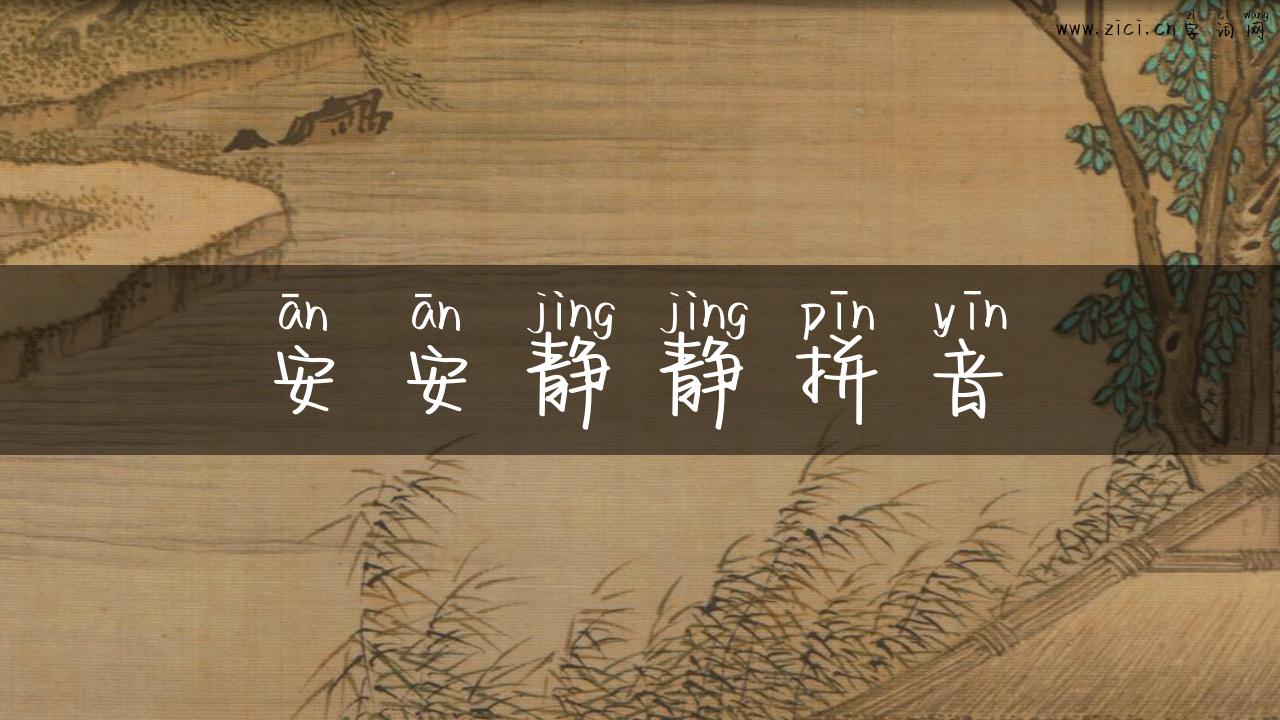 zì cí wǎng
www.zici.cn字词网
ān ān jìng jìng pīn yīn
安安静静拼音